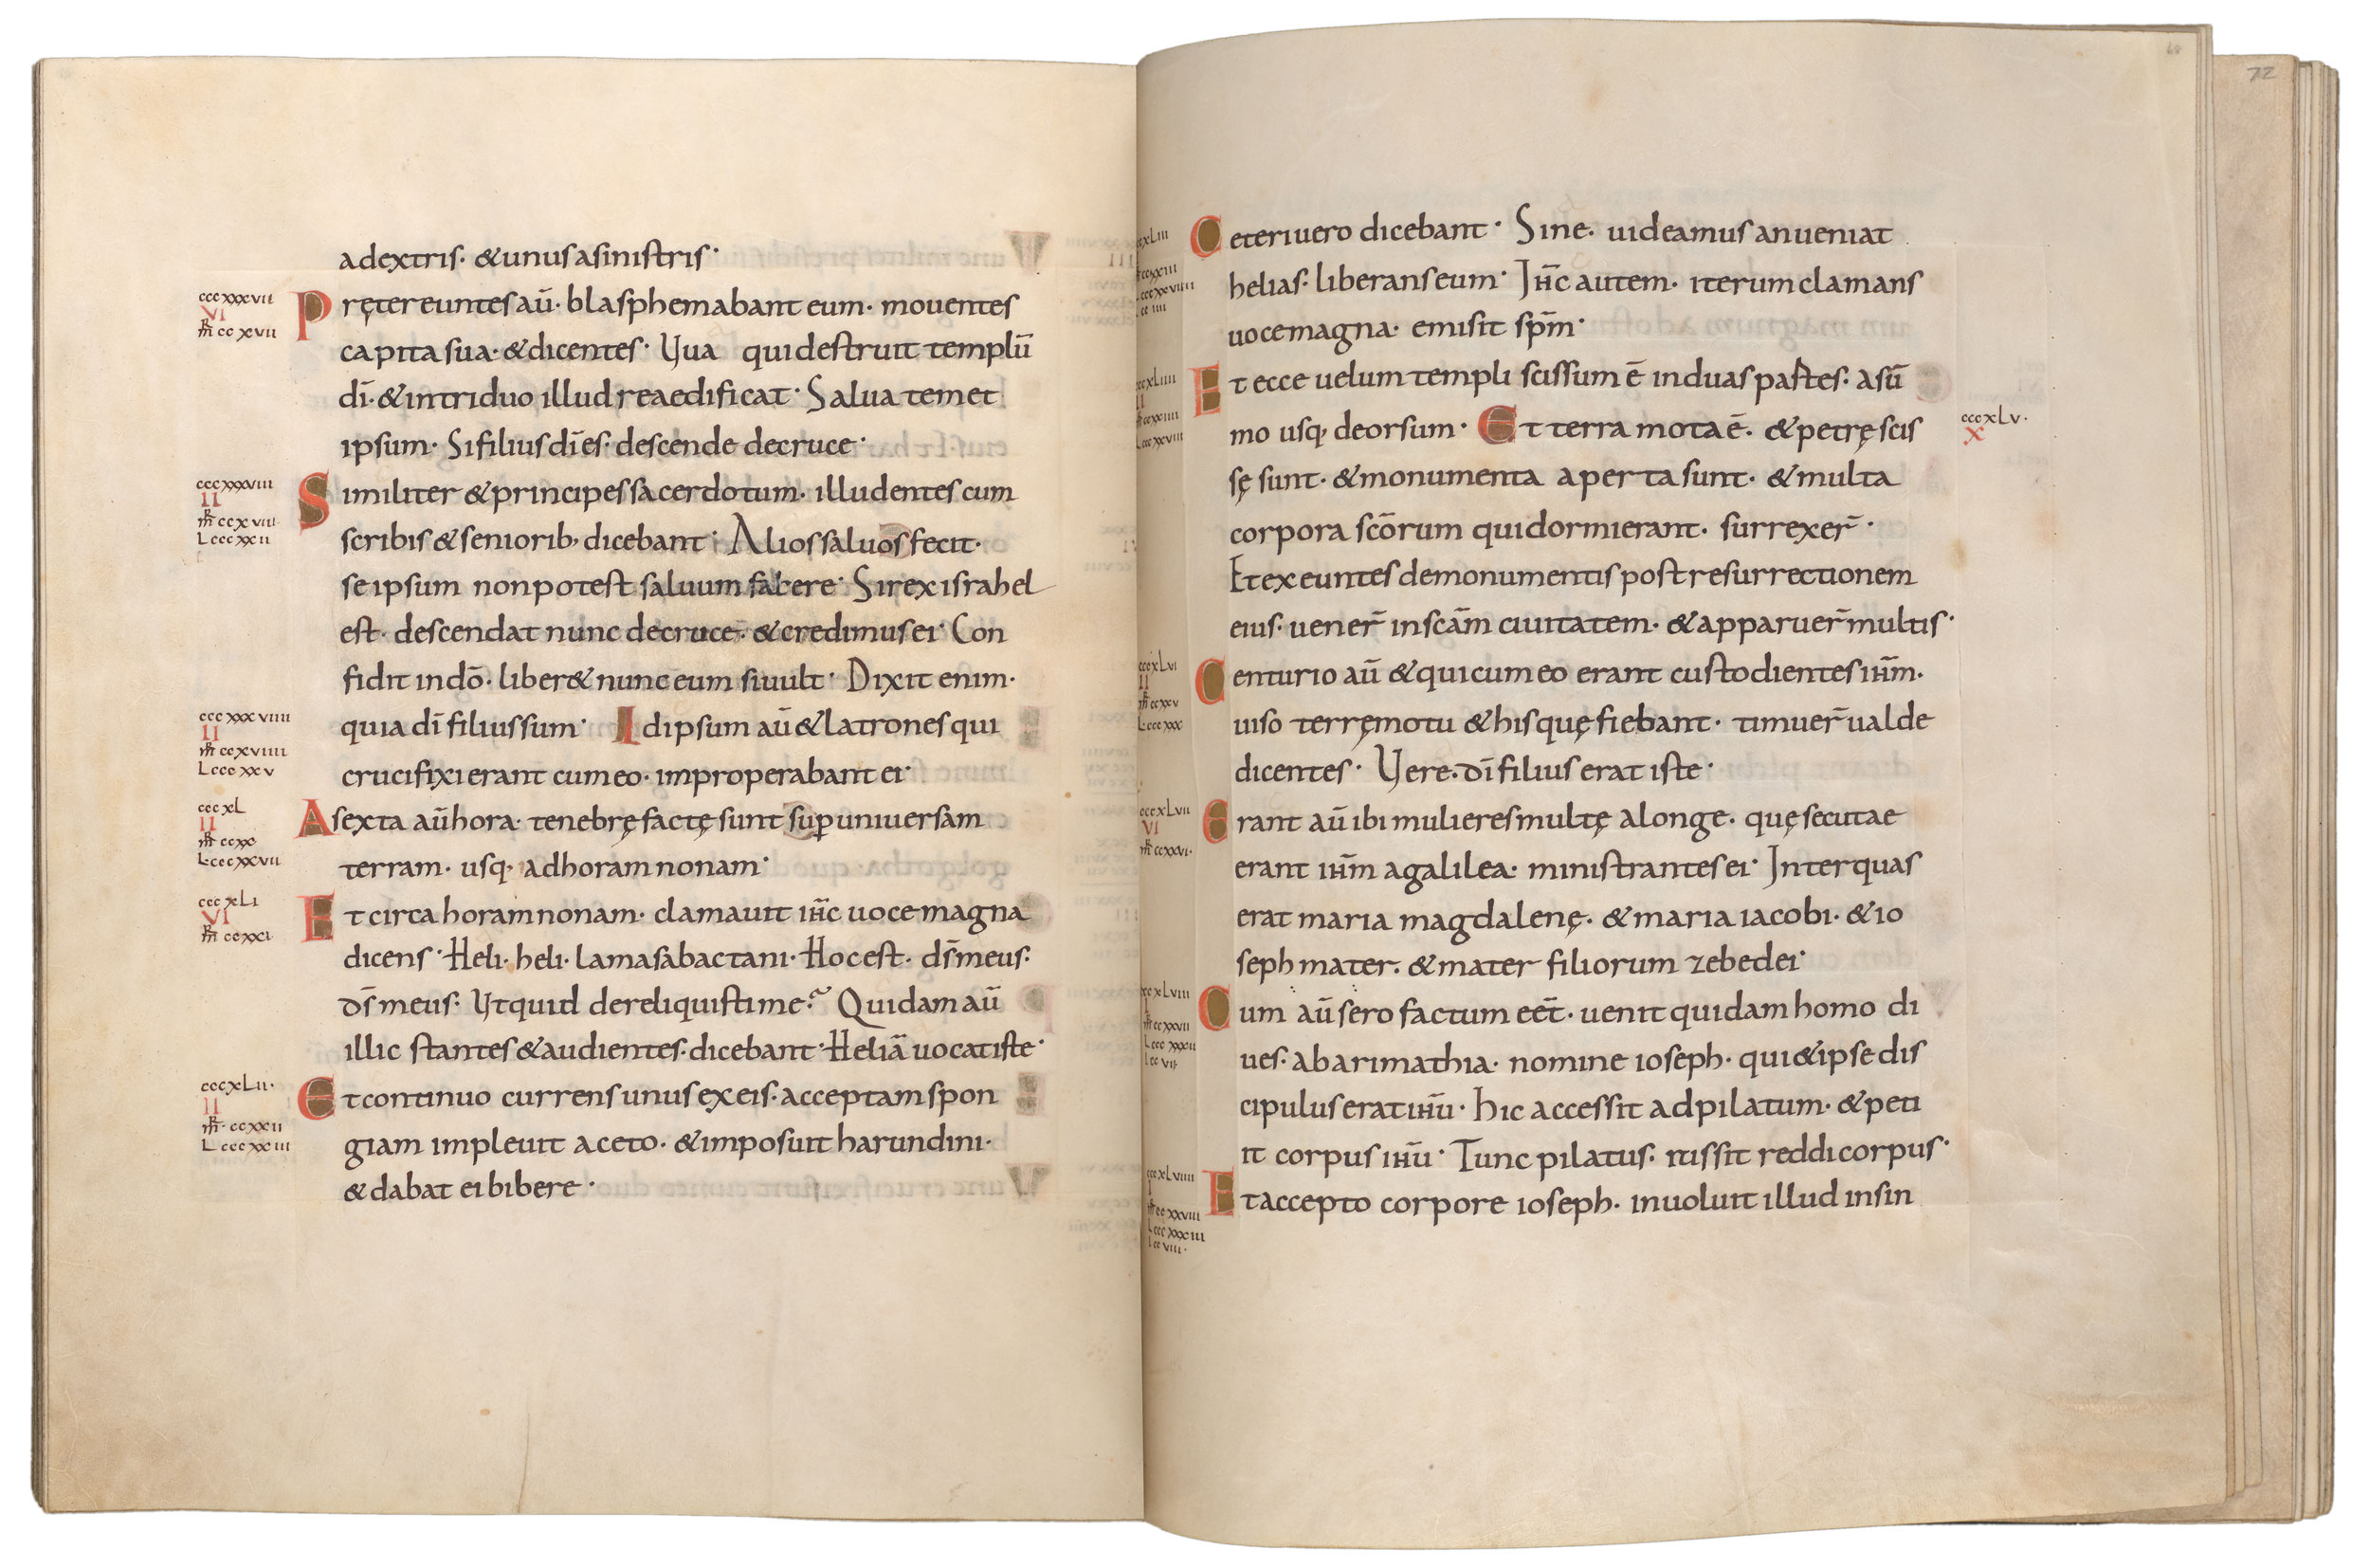 adextris· &unus asinistris·
cccxxxvii
VI
mr ccxvii
Pręter euntes aū· blasphemabant eum· mouentes
capita sua· & dicentes· Uua qui destruit templū
dī· & intriduo illud reaedificat· Salua temet
ipsum· Si filius dī es· descende decruce·
cccxxxviii
II
mr ccxviii
L cccxxii
Similiter & principes sacerdotum· illudentes cum
scribis &seniorib; dicebant· Alios saluos fecit·
se ipsum non potest saluum facere· Si rex israhel
est· descendat nunc decruce· & credimus ei· Con
fidit indō· liber& nunc eum si uult· Dixit enim·
cccxxxviiii
II
mr ccxviiii
L cccxxv
quia dī filius sum· Id ipsum aū & latrones qui
crucifixi erant cum eo· improperabant ei·
cccxL
II
mr ccxx
L cccxxvii
A sexta aū hora· tenebrę factę sunt sup uniuersam
terram· usq; ad horam nonam·
cccxLi
VI
mr ccxxi
Et circa horam nonam· clamauit ihc̄ uoce magna
dicens· Heli· heli· lamasabactani· Hoc est· ds̄ meus·
ds̄ meus· Ut quid dereliquisti me? Quidam aū
illic stantes & audientes· dicebant· Heliā uocat iste·
cccxLii·
II
mr ccxxii
L cccxxiii
Et continuo currens unus ex eis· acceptam spon
giam impleuit aceto· & imposuit harundini·
& dabat ei bibere·
72
Ceteri uero dicebant· Sine· uideamus an ueniat
helias· liberans eum· Ihc̄ autem· iterum clamans
uoce magna· emisit spm̄·
Et ecce uelum templi scissum ē in duas partes· a sū
mo usq; deorsum· Et terra mota ē· & petrę scis
cccxLv·
X
sę sunt· & monumenta aperta sunt· & multa
corpora scōrum qui dormierant· surrexer̄·
Et exeuntes demonumentis post resurrectionem
eius· uener̄ in scām ciuitatem· & apparuer̄ multis·
Centurio aū & qui cum eo erant custodientes ihm̄·
uiso terręmotu & his quę fiebant· timuer̄ ualde
dicentes· Uere· dī filius erat iste·
cccxLvii
VI
mr ccxxvi·
Erant aū ibi mulieres multę alonge· quę secutae
erant ihm̄ agalilea· ministrantes ei· Inter quas
erat maria magdalenę· & maria iacobi· & io
seph mater· & mater filiorum zebedei·
Cum aū sero factum eēt· uenit quidam homo di
ues· ab arimathia· nomine ioseph· qui & ipse dis
cipulus erat ihū· hic accessit ad pilatum· & peti
it corpus ihū· Tunc pilatus· iussit reddi corpus·
Et accepto corpore ioseph· inuoluit illud in sin